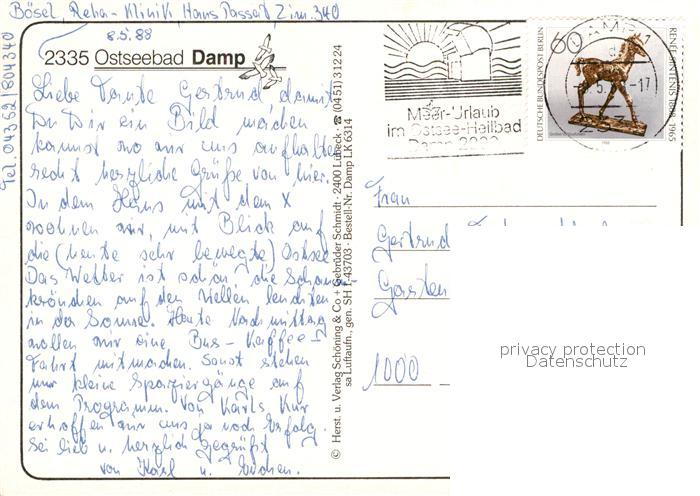 Bösel, Reha-Klinik Haus Passat, Zim. 340
8.5.88
Tel. 04352/804340
2335 Ostseebad Damp
Liebe Tante Gertrud, damit
Du Dir ein Bild machen
kannst wo wir uns aufhalten
recht herzliche Grüße von hier.
In dem Haus mit dem X
wohnen wir, mit Blick auf
die (heute sehr bewegte) Ostsee.
Das Wetter ist schön, die Schaum-
krönchen auf den Wellen leuchten
in der Sonne. Heute Nachmittag
wollen wir eine Bus-Kaffee-
Fahrt mitmachen. Sonst stehen
nur kleine Spaziergänge auf
dem Programm. Von Karls Kur
erhoffen wir uns ja noch Erfolg.
Sei lieb u. herzlich gegrüßt
von Karl u.
© Herst. u. Verlag Schöning & Co + Gebrüder Schmidt · 2400 Lübeck · ☎ (0451) 31224
sa Luftaufn., gen. SH 1-43703 · Bestell-Nr. Damp LK 6314
Meer-Urlaub
im Ostsee-Heilbad
Damp 2000
DEUTSCHE BUNDESPOST BERLIN
60
RENÉE SINTENIS 1888-1965
DAMP 1
-17
Frau
Gertrud
Garten
1000
privacy protection
Datenschutz